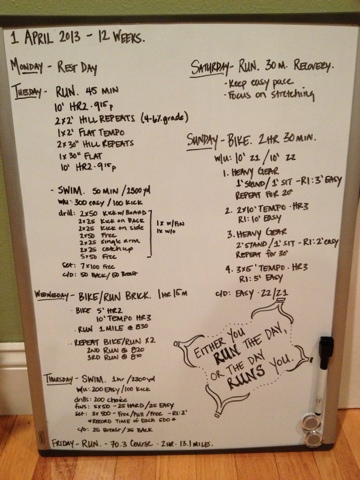 1 APRIL 2013 - 12 WEEKS.
MONDAY - REST DAY
TUESDAY - RUN. 45 MIN
10' HR2 - 915p
2x2' HILL REPEATS (4-6% grade)
1x2' FLAT TEMPO
2x30" HILL REPEATS
1x30" FLAT
10' HR2 - 915p
- SWIM. 50 MIN / 2300 yd
W/U: 300 easy / 100 KICK
drill: 2x50 KICK w/BOARD
2x25 KICK on BACK
2x25 KICK on side
2x50 Free
2x25 single arm
2x25 catch up
5x50 Free
1x w/FIN
1x w/o
set: 7x100 free
C/D: 50 BACK / 50 Breast
WEDNESDAY - BIKE/RUN BRICK. 1 HR 15 M
BIKE 5' HR2
10' TEMPO HR3
RUN 1 MILE @ 830
REPEAT BIKE/RUN X2
2ND RUN @ 820
3RD RUN @ 810
THURSDAY - SWIM. 1 hr / 2350 yd
W/U: 200 EASY / 100 KICK
drills: 200 choice
5x50 - 25 HARD / 25 EASY
set: 3x500 - Free / Pull / Free - RI: 2'
*RECORD TIME OF EACH 500*
C/D: 25 Breast / 25 BACK
FRIDAY - RUN. - 70.3 COURSE - 2 HR - 13.1 MILES.
SATURDAY - RUN. 30 M. RECOVERY.
- Keep easy pace
- Focus on stretching
SUNDAY - BIKE. 2 HR 30 MIN.
W/U: 10' Z1 / 10' Z2
1. HEAVY GEAR
1' STAND / 1' SIT - RI: 3' EASY
REPEAT FOR 20'
2. 2x10' TEMPO - HR3
RI: 10' EASY
3. HEAVY GEAR
2' STAND / 1' SIT - RI: 2' EASY
REPEAT FOR 30'
4. 3x5' TEMPO - HR3
RI: 5' EASY
C/D: EASY - Z2/Z1
EITHER YOU
RUN THE DAY,
OR THE DAY
RUNS YOU.